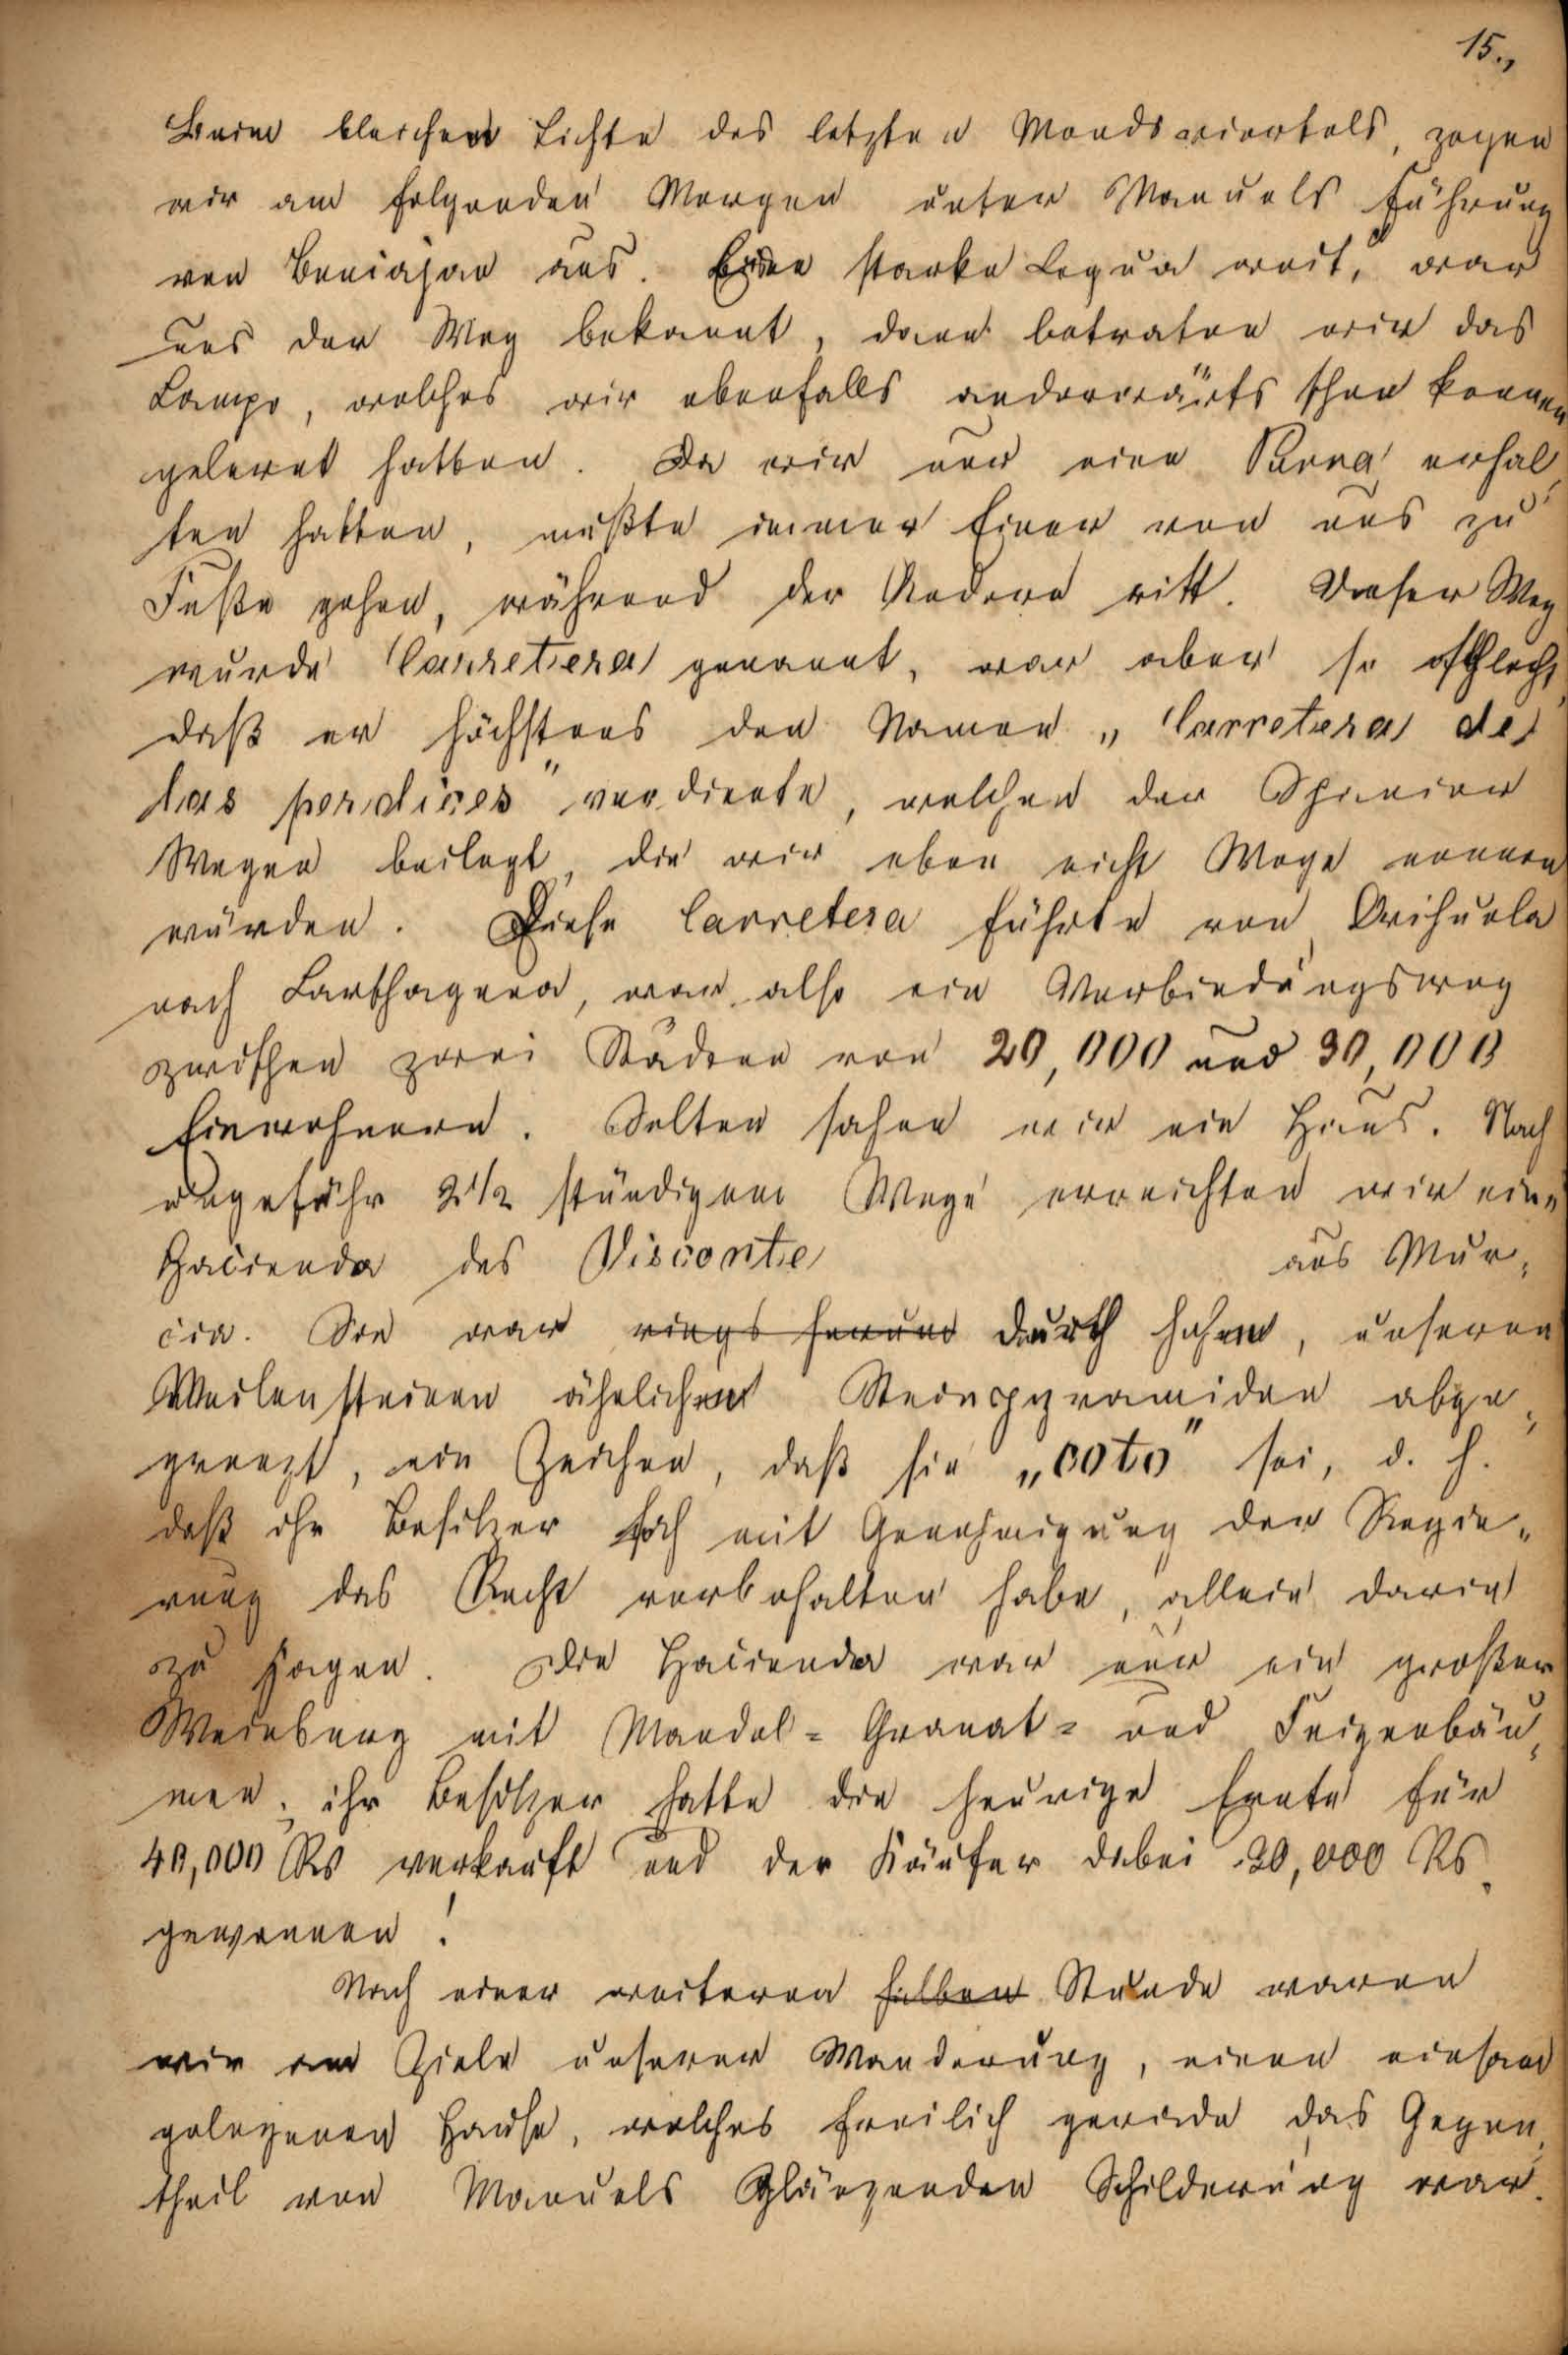 15.,
Beim bleichen Lichte des letzten Mondsviertels, zogen
wir am folgenden Morgen unter Manuels Führung
von Beniajan aus. Eine starke Legua weit, war
uns der Weg bekannt, dann betraten wir das
Campo, welches wir ebenfalls anderwärts schon kennen
gelernt hatten. Da wir nur eine Burra erhal-
ten hatten, mußte immer Einer von uns zu
Fuße gehen, während der Andere ritt. Dieser Weg
wurde Carretera genannt, war aber so schlecht,
daß er höchstens den Namen „Carretera de
las perdices" verdiente, welchen der Spanier
Wegen beilegt, die wir eben nicht Wege nennen
würden. Diese Carretera führte von Orihuela
nach Carthagena, war also ein Verbindungsweg
zwischen zwei Städten von 20,000 und 30,000
Einwohnern. Selten sahen wir ein Haus. Nach
ungefähr 2 1/2 stündigem Wege erreichten wir eine
Hacienda des Visconte aus Mur-
cia. Sie war rings herum durch hohe, unseren
Meilensteinen ähnliche Steinpyramiden abge-
grenzt, ein Zeichen, daß sie „coto" sei, d. h.
daß ihr Besitzer sich mit Genehmigung der Regie-
rung das Recht vorbehalten habe, allein darin
zu jagen. Die Hacienda war nur ein großer
Weinberg mit Mandel- Granat- und Feigenbäu-
men; ihr Besitzer hatte die heurige Ernte für
40,000 Rs verkauft und der Käufer dabei 20,000 Rs.
gewonnen!
Nach einer weiteren halben Stunde waren
wir am Ziele unserer Wanderung, einem einsam
gelegenen Hause, welches freilich gerade das Gegen-
theil von Manuels glänzenden Schilderung war.